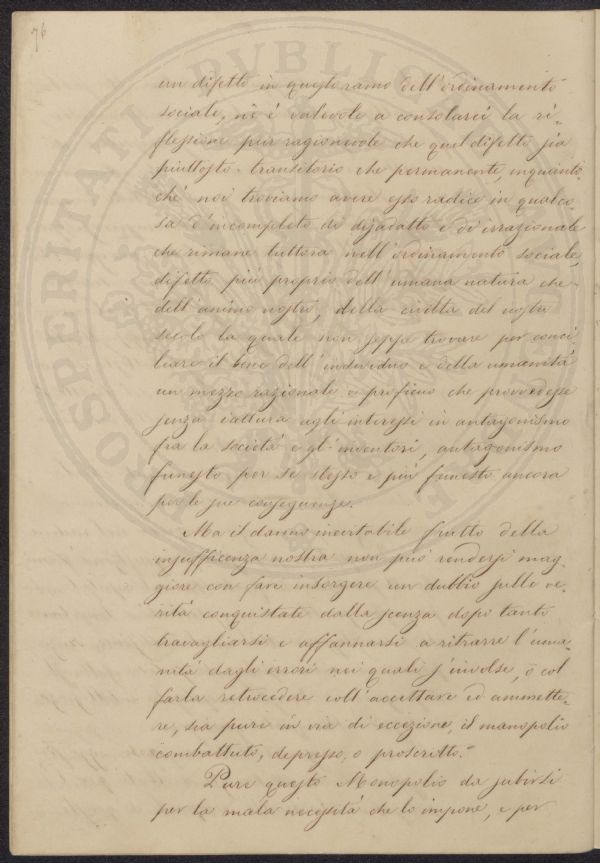 76
un difetto in questo ramo dell'ordinamento
sociale, nè è valevole a consolarci la ri-
flessione pur ragionevole che quel difetto sia
piuttosto transitorio che permanente, inquanto-
chè noi troviamo avere esso radice in qualco-
sa d'incompleto di disadatto e di irrazionale
che rimane tuttora nell'ordinamento sociale,
difetto più proprio dell'umana natura che
dell'animo nostro, della civiltà del nostro
secolo la quale non seppe trovare per conci-
liare il bene dell'individuo e della umanità
un mezzo razionale e proficuo che provvedesse
senza iattura agli interessi in antagonismo
fra la società e gl'inventori, antagonismo
funesto per se stesso e più funesto ancora
per le sue conseguenze.
Ma il danno inevitabile frutto della
insufficenza nostra non può rendersi mag-
giore con fare insorgere un dubbio sulle ve-
rità conquistate dalla scenza dopo tanto
travagliarsi e affannarsi a ritrarre l'uma-
nità dagli errori nei quali s'involse, o col
farla retrocedere coll'accettare ed ammette-
re, sia pure in via di eccezione, il monopolio
combattuto, depresso, o proscritto."
Pure questo Monopolio da subirsi
per la mala necessità che lo impone, e per
PROSPERITATI PVBLICAE